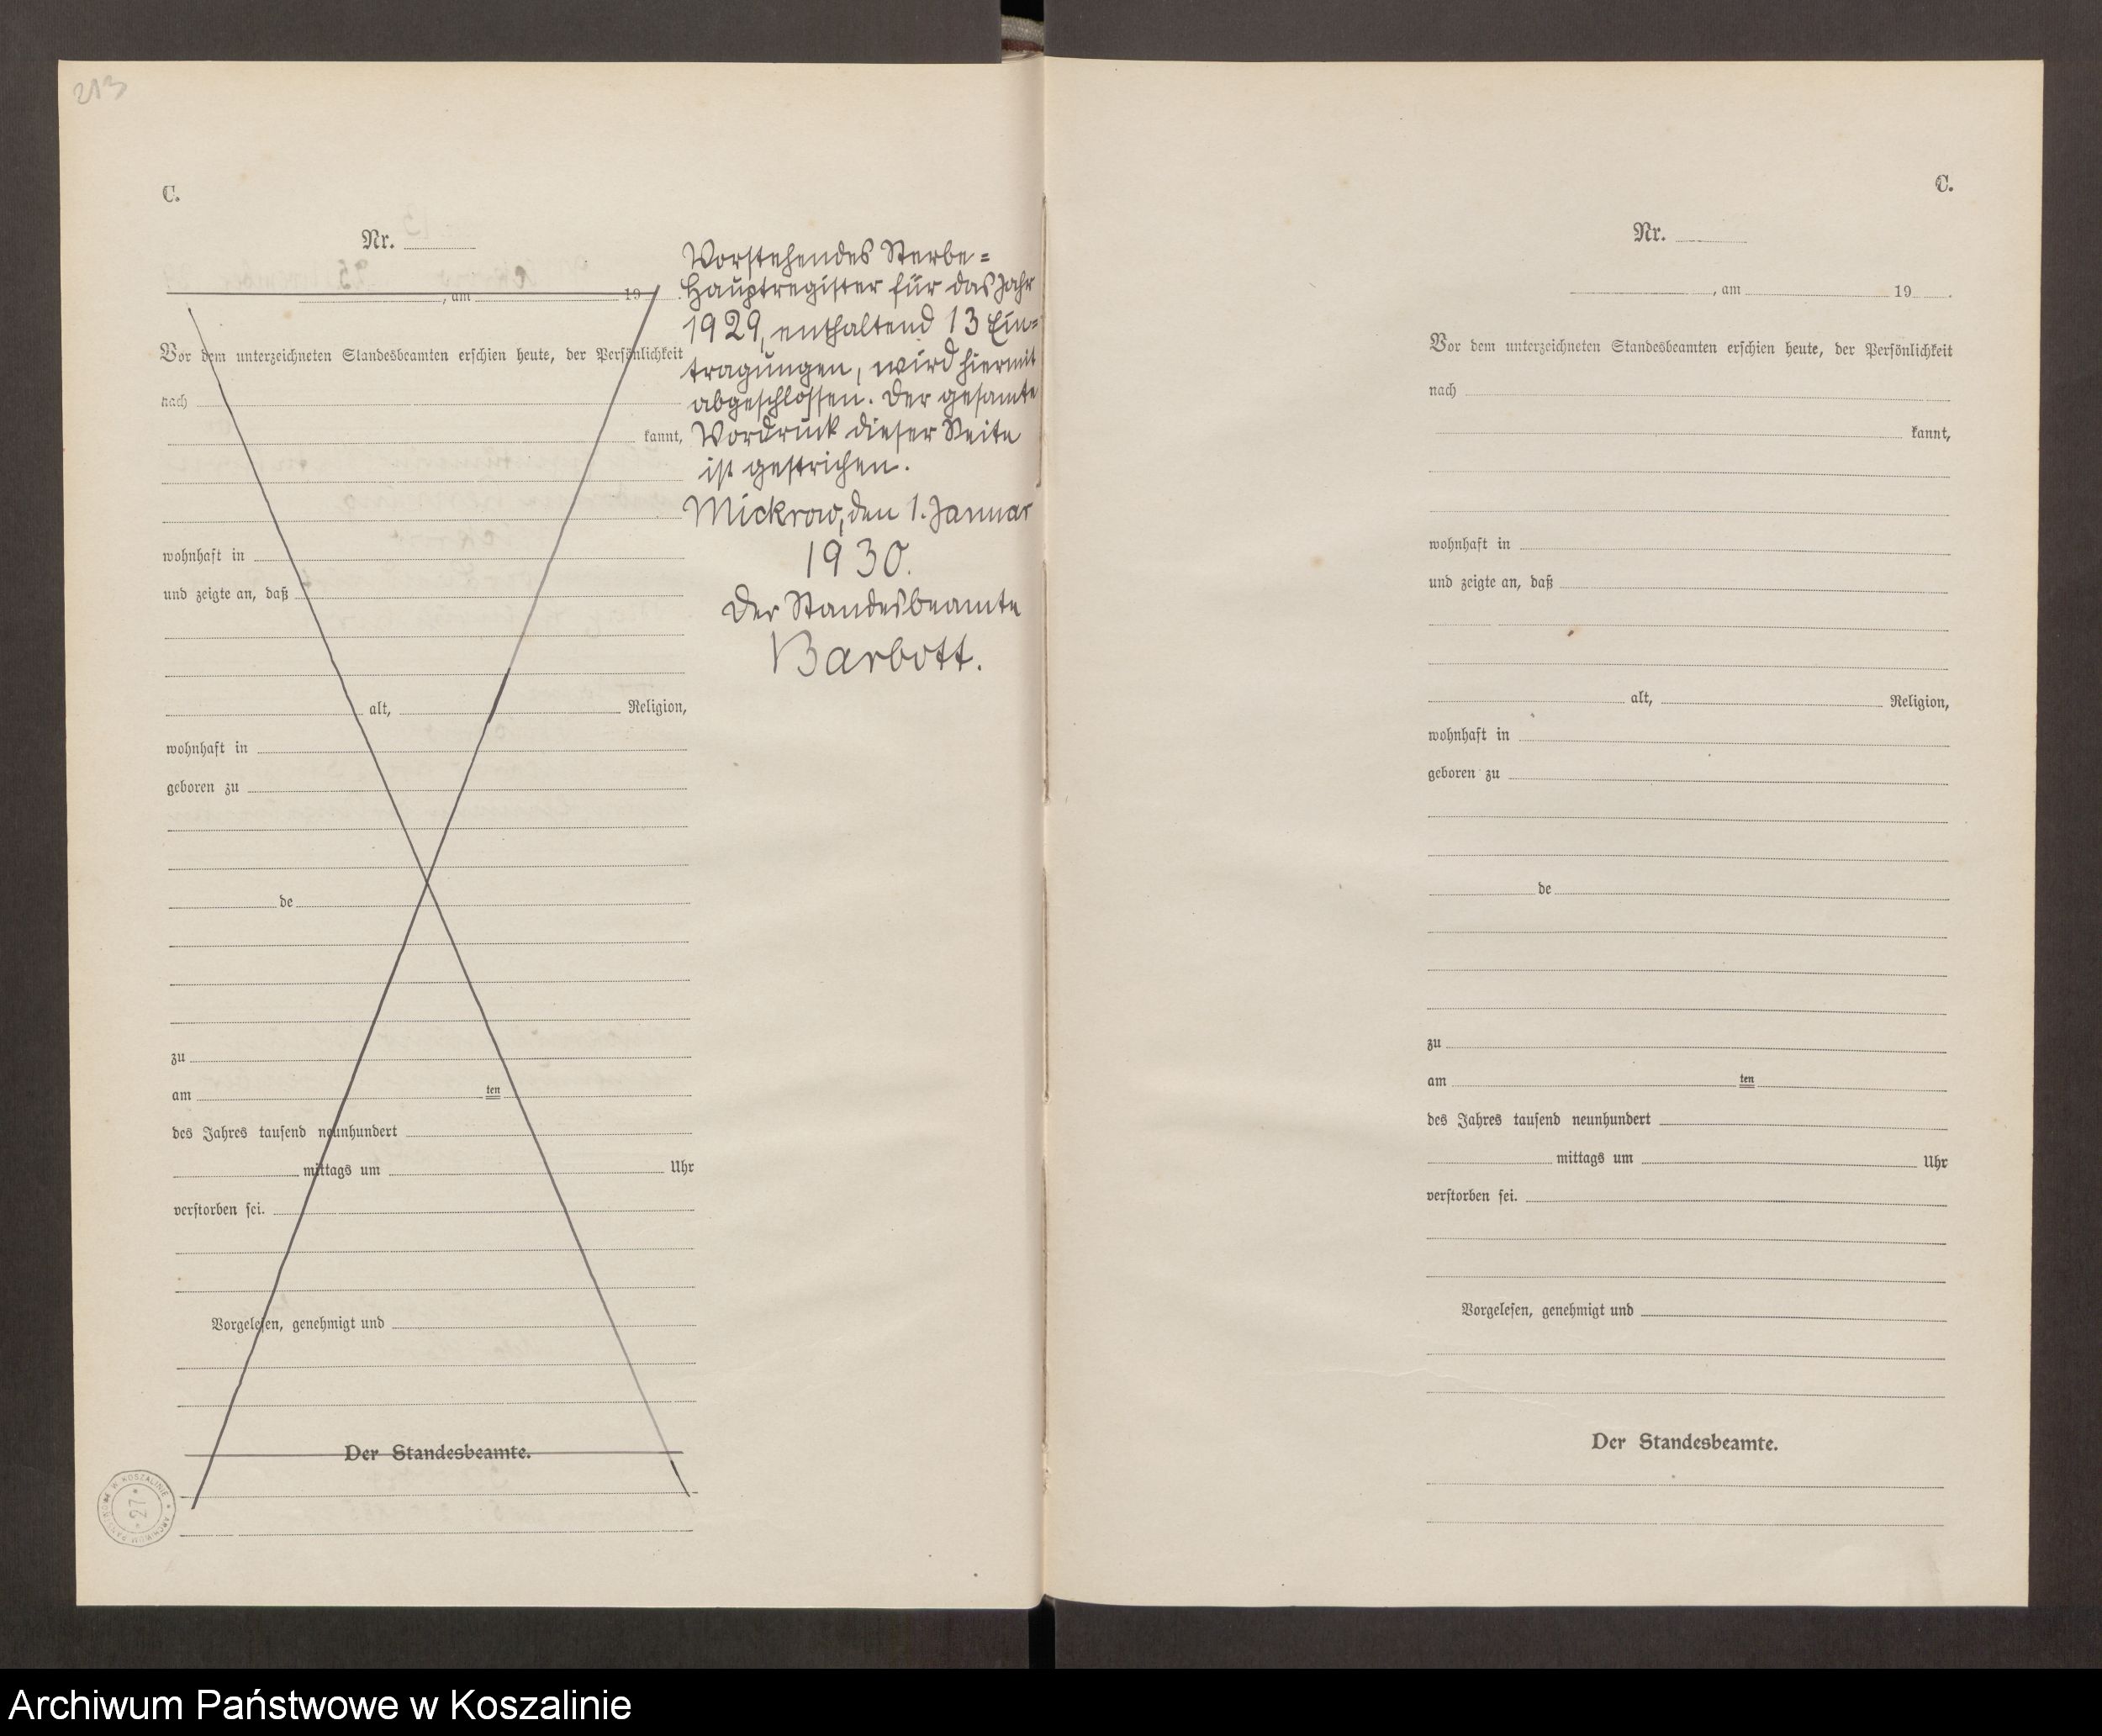 213
C.
Nr.
, am 19 .
Vor dem unterzeichneten Standesbeamten erschien heute, der Persönlichkeit
nach
kannt,
wohnhaft in
und zeigte an, daß
alt, Religion,
wohnhaft in
geboren zu
de
zu
am ten
des Jahres tausend neunhundert
mittags um Uhr
verstorben sei.
Vorgelesen, genehmigt und
Der Standesbeamte.
ARCHIWUM PAŃSTWOWE W KOSZALINIE
* 27 *
Vorstehendes Sterbe=
Hauptregister für das Jahr
1929, enthaltend 13 Ein=
tragungen, wird hiermit
abgeschlossen. Der gesamte
Vordruck dieser Seite
ist gestrichen.
Mickrow, den 1. Januar
1930.
Der Standesbeamte
Barbott.
C.
Nr.
, am 19 .
Vor dem unterzeichneten Standesbeamten erschien heute, der Persönlichkeit
nach
kannt,
wohnhaft in
und zeigte an, daß
alt, Religion,
wohnhaft in
geboren zu
de
zu
am ten
des Jahres tausend neunhundert
mittags um Uhr
verstorben sei.
Vorgelesen, genehmigt und
Der Standesbeamte.
Archiwum Państwowe w Koszalinie